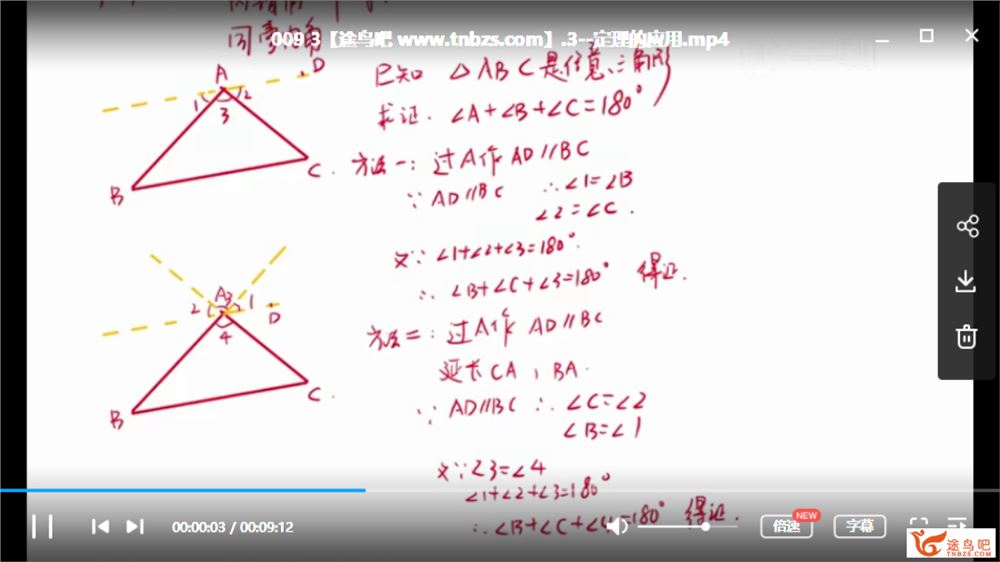 同旁内角
009 3【途鸟吧 www.tnbzs.com】.3--定理的应用.mp4
已知 △ABC是任意三角形
求证. ∠A+∠B+∠C=180°
A D
1 2
3
B C
方法一: 过A作 AD∥BC
∵ AD∥BC ∴∠1=∠B
∠2=∠C.
又∵ ∠1+∠2+∠3=180°.
∴ ∠B+∠C+∠3=180° 得证.
A 3
2 1
D
4
B C
方法二: 过A作 AD∥BC
延长 CA, BA.
∵ AD∥BC ∴ ∠C=∠2
∠B=∠1
又∵ ∠3=∠4
∠1+∠2+∠3=180°
∴ ∠B+∠C+∠4=180° 得证.
00:00:03 / 00:09:12
倍速
NEW
字幕
途鸟吧
TNBZS.COM